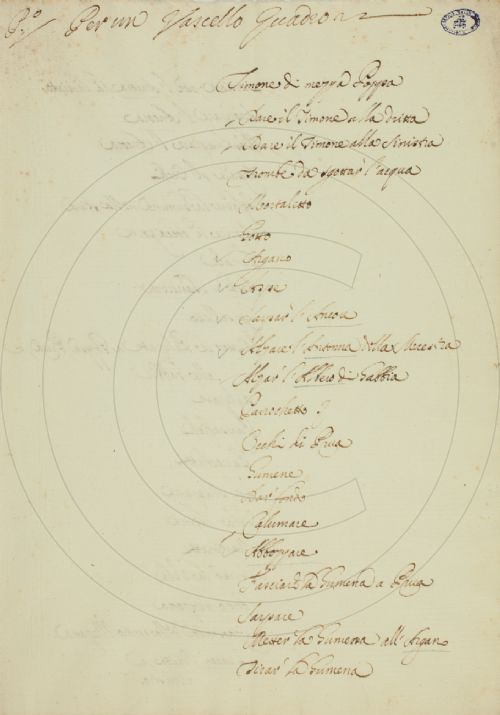 P.º Per un Vascello Quadro
Timone di mezza Poppa
Dare il Timone alla dritta
Dare il Timone alla Sinistra
Trombe da sgottar l'acqua
Botto
Argano
Sarpar l'Ancora
Alzare l'Antenna della Maestra
Alzar l'Albero di Gabbia
Parrochetto
Occhi di Prua
Gumene
Dar fondo
Calumare
Abbozzare
Fasciar la Gumena a Prua
Sarpare
Metter la Gumena all'Argano
Tirar la Gumena